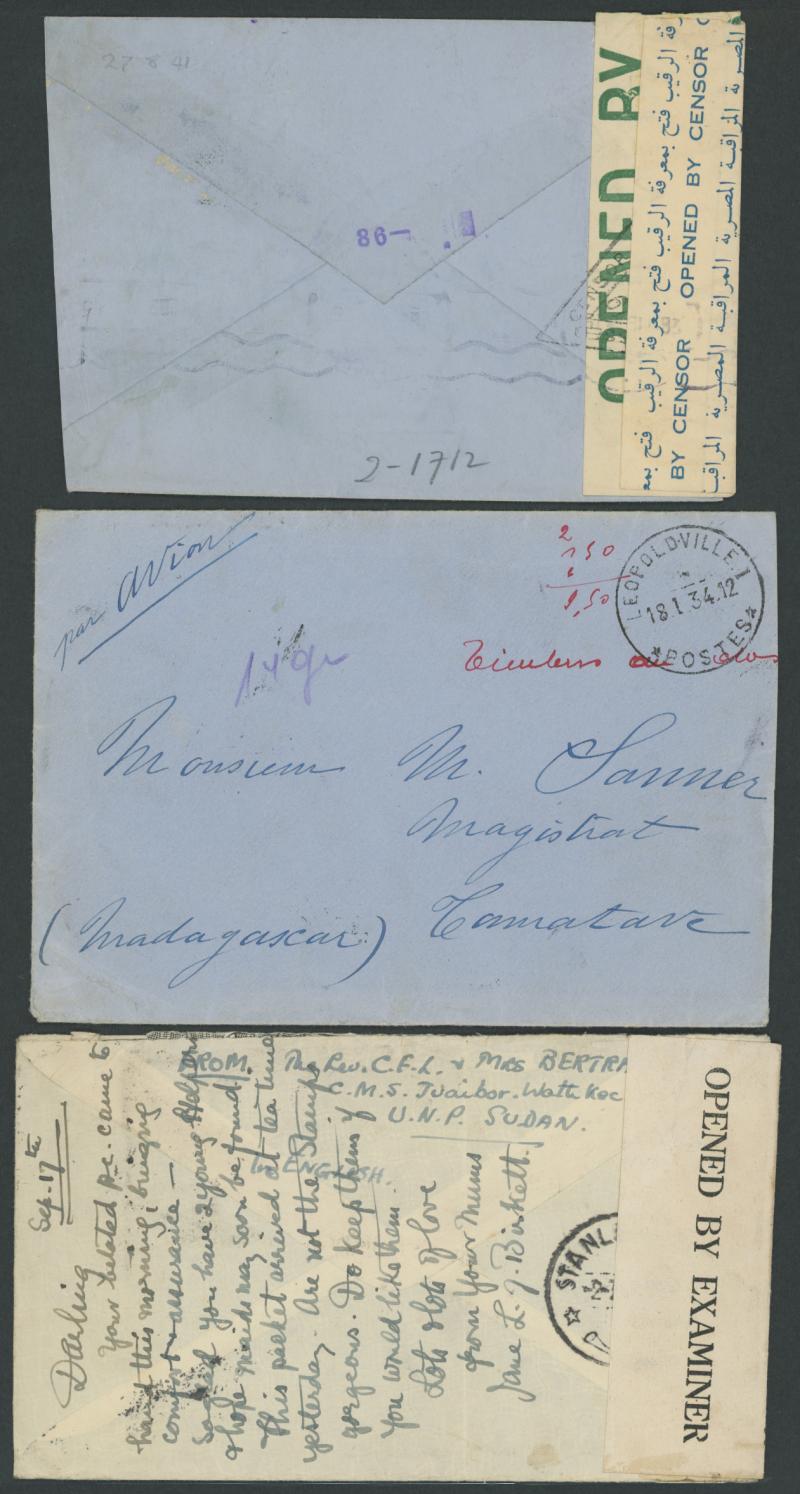 27 8 41
86-
OPENED BY
فتح بمعرفة الرقيب فتح بمعرفة الرقيب
BY CENSOR OPENED BY CENSOR
المراقبة المصرية المراقبة المصرية
2-1712
par Avion
2
150
9,50
LEOPOLDVILLE 1
18.1.34.12
POSTES
14gr
Monsieur M. Sanner
Magistrat
Tamatave
(Madagascar)
FROM. The Rev. C.E.L. & Mrs BERTRA
C.M.S. Juaibor. Wath Kec
U.N.P. SUDAN.
In ENGLISH.
Sep. 17th
Darling
Your belated p.c. came to
hand this morning, bringing
comfort & assurance —
So glad you have 2 young helpers
& hope maids may soon be found.
This packet arrived at tea time
yesterday. Are not the Stamps
gorgeous. Do keep them if
you would like them.
Lots & lots of love
from Your Mums
Jane L. J. Birkett.
STANL
OPENED BY EXAMINER